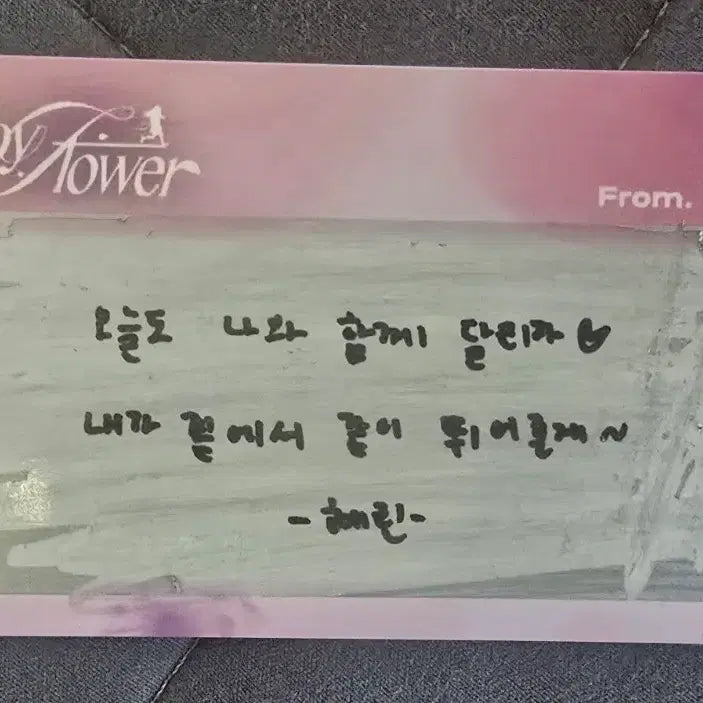 Tower
From.
오늘도 나와 함께 달리자
내가 곁에서 같이 뛰어줄게~
-혜린-